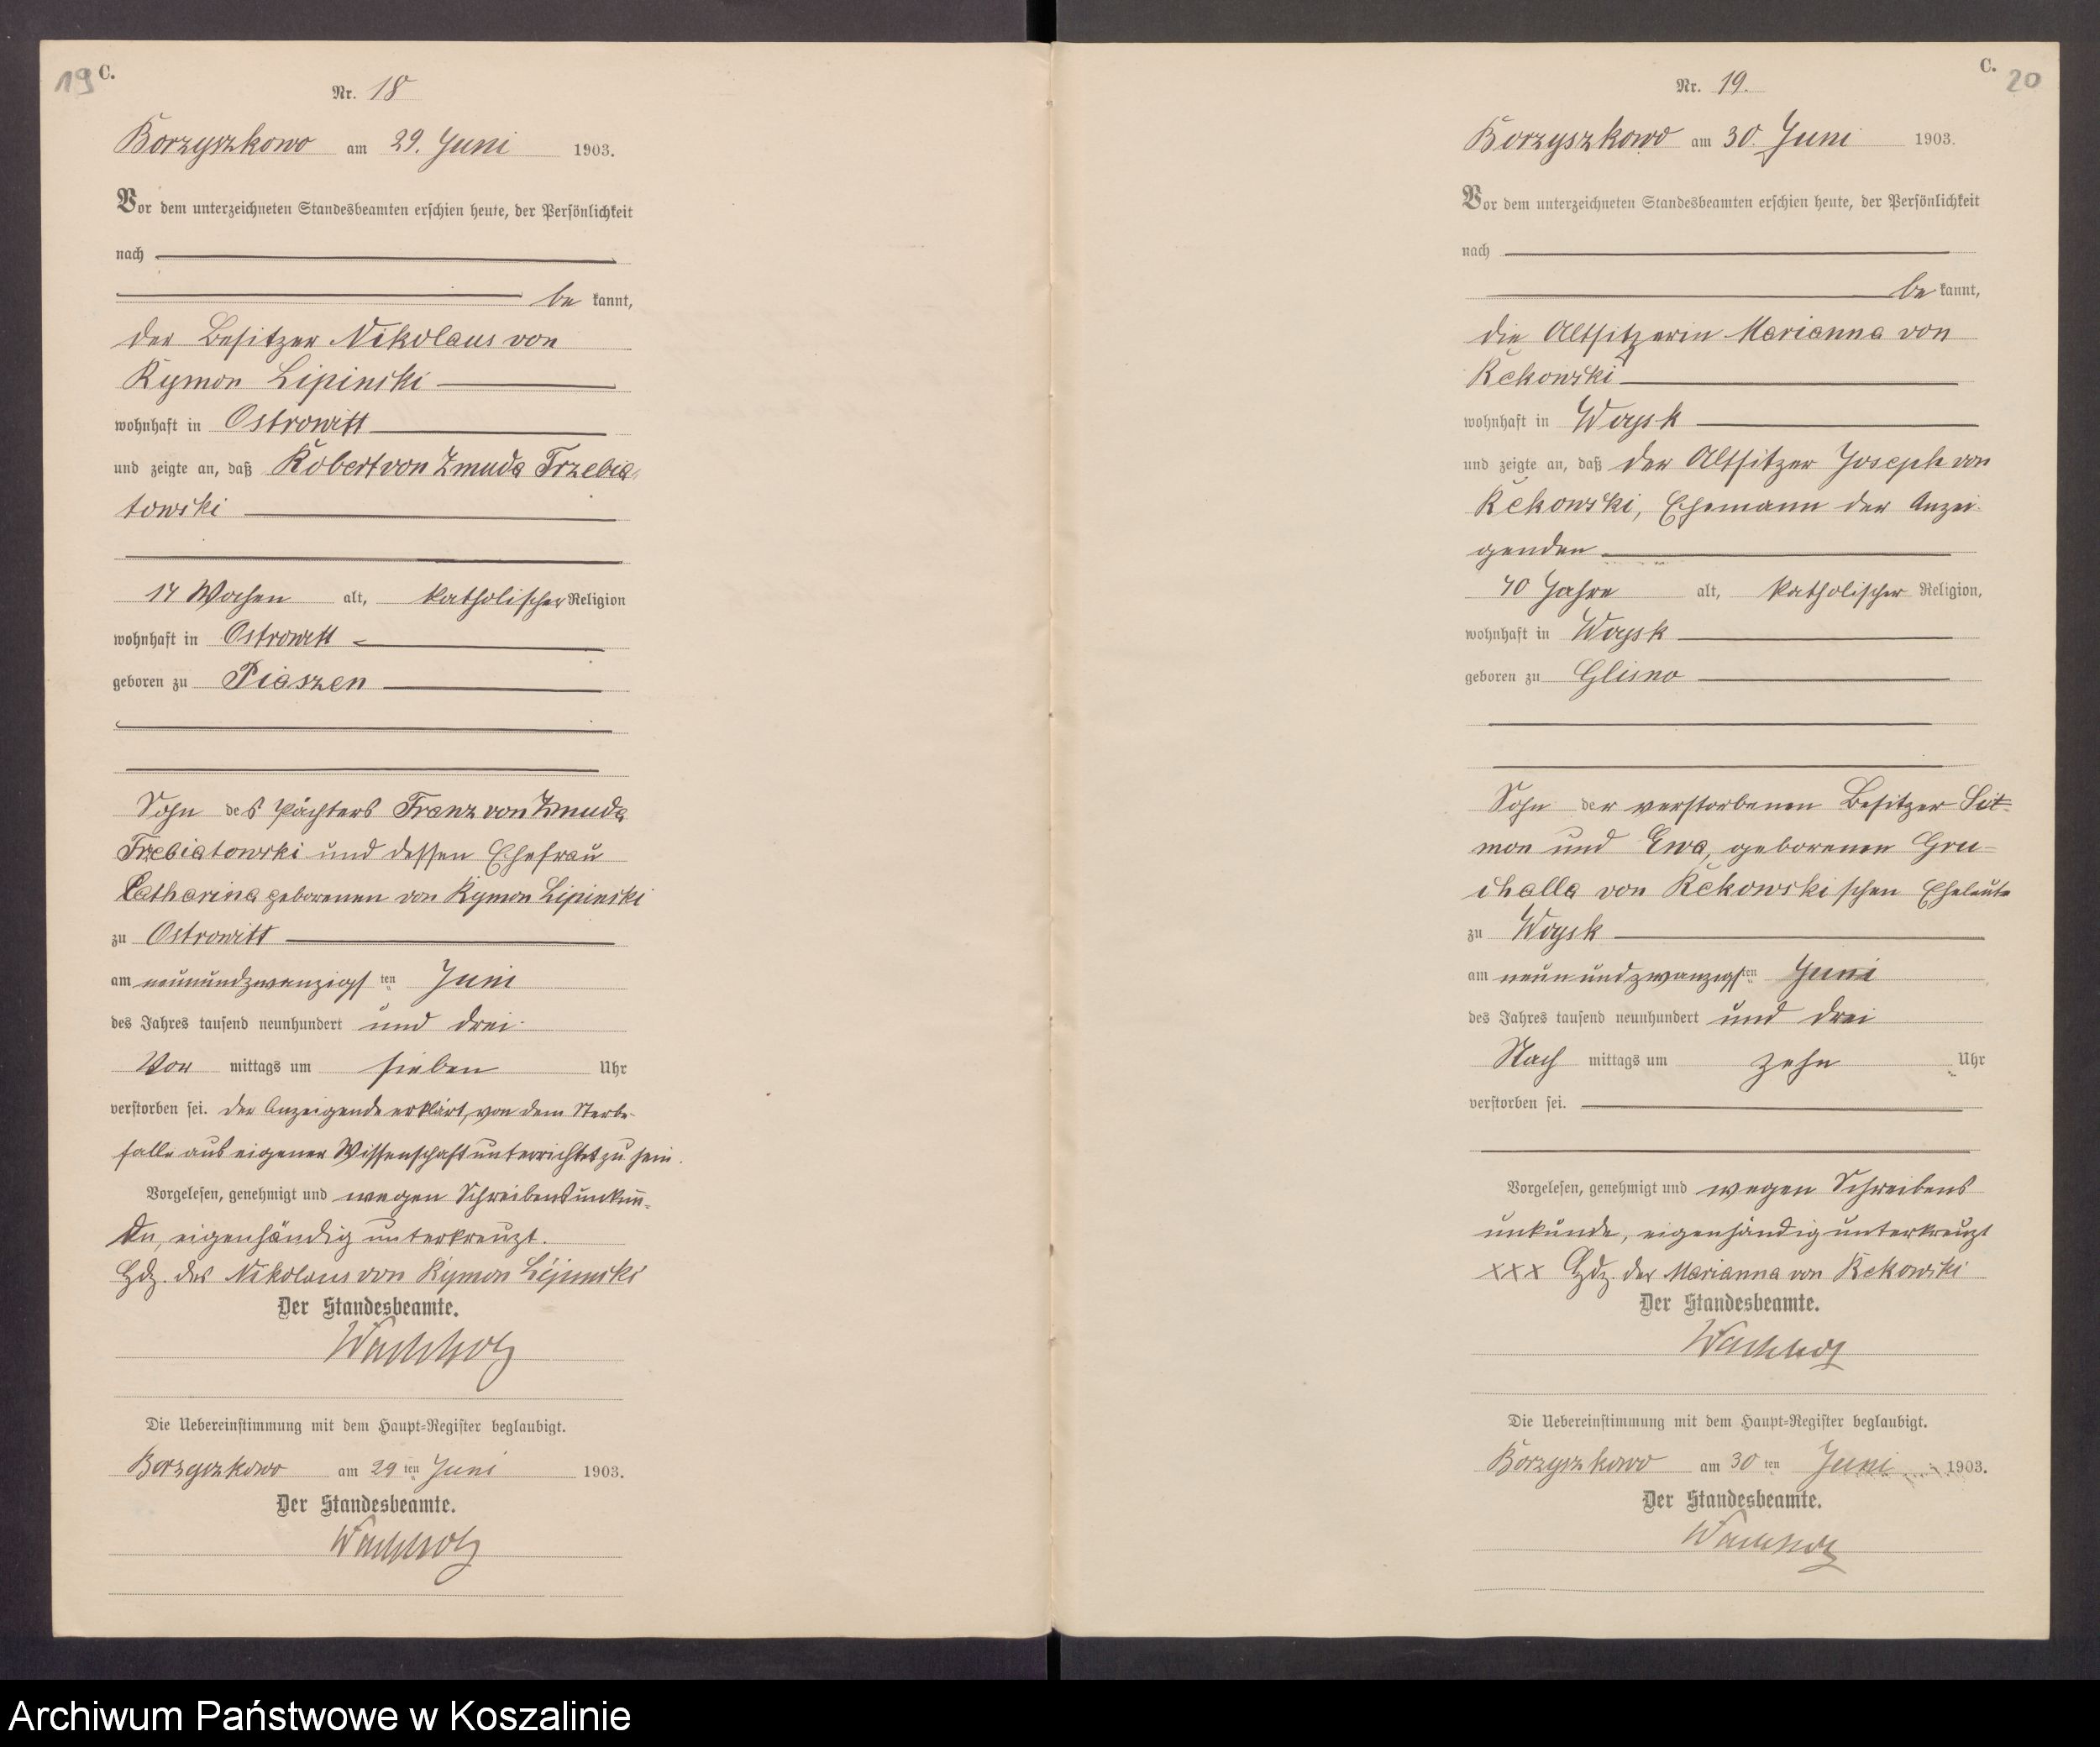 19 C.
Nr. 18
Borzyszkowo am 29. Juni 1903.
Vor dem unterzeichneten Standesbeamten erschien heute, der Persönlichkeit
nach
be kannt,
der Besitzer Nikolaus von
Rymon Lipinski
wohnhaft in Ostrowitt
und zeigte an, daß Robert von Zmuda Trzebia-
towski
14 Wochen alt, katholischer Religion
wohnhaft in Ostrowitt
geboren zu Piaszen
Sohn des Pächters Franz von Zmuda
Trzebiatowski und dessen Ehefrau
Catharina geborenen von Rymon Lipinski
zu Ostrowitt
am neunundzwanzigsten Juni
des Jahres tausend neunhundert und drei
Vor mittags um sieben Uhr
verstorben sei. Der Anzeigende erklärt, von dem Sterbe-
falle aus eigener Wissenschaft unterrichtet zu sein.
Vorgelesen, genehmigt und wegen Schreibensunkun-
de, eigenhändig unterkreuzt.
Hdz. des Nikolaus von Rymon Lipinski
Der Standesbeamte.
Wachholz
Die Uebereinstimmung mit dem Haupt-Register beglaubigt.
Borzyszkowo am 29 ten Juni 1903.
Der Standesbeamte.
Wachholz
C. 20
Nr. 19.
Borzyszkowo am 30. Juni 1903.
Vor dem unterzeichneten Standesbeamten erschien heute, der Persönlichkeit
nach
be kannt,
die Altsitzerin Marianna von
Rekowski
wohnhaft in Woysk
und zeigte an, daß der Altsitzer Joseph von
Rekowski, Ehemann der Anzei-
genden
70 Jahre alt, katholischer Religion,
wohnhaft in Woysk
geboren zu Glisno
Sohn der verstorbenen Besitzer
mon und Ewa, geborenen Gru-
challa von Rekowskischen Eheleute
zu Woysk
am neunundzwanzigsten Juni
des Jahres tausend neunhundert und drei
Nach mittags um zehn Uhr
verstorben sei.
Vorgelesen, genehmigt und wegen Schreibens
unkunde, eigenhändig unterkreuzt
XXX Hdz. der Marianna von Rekowski
Der Standesbeamte.
Wachholz
Die Uebereinstimmung mit dem Haupt-Register beglaubigt.
Borzyszkowo am 30 ten Juni 1903.
Der Standesbeamte.
Wachholz
Archiwum Państwowe w Koszalinie